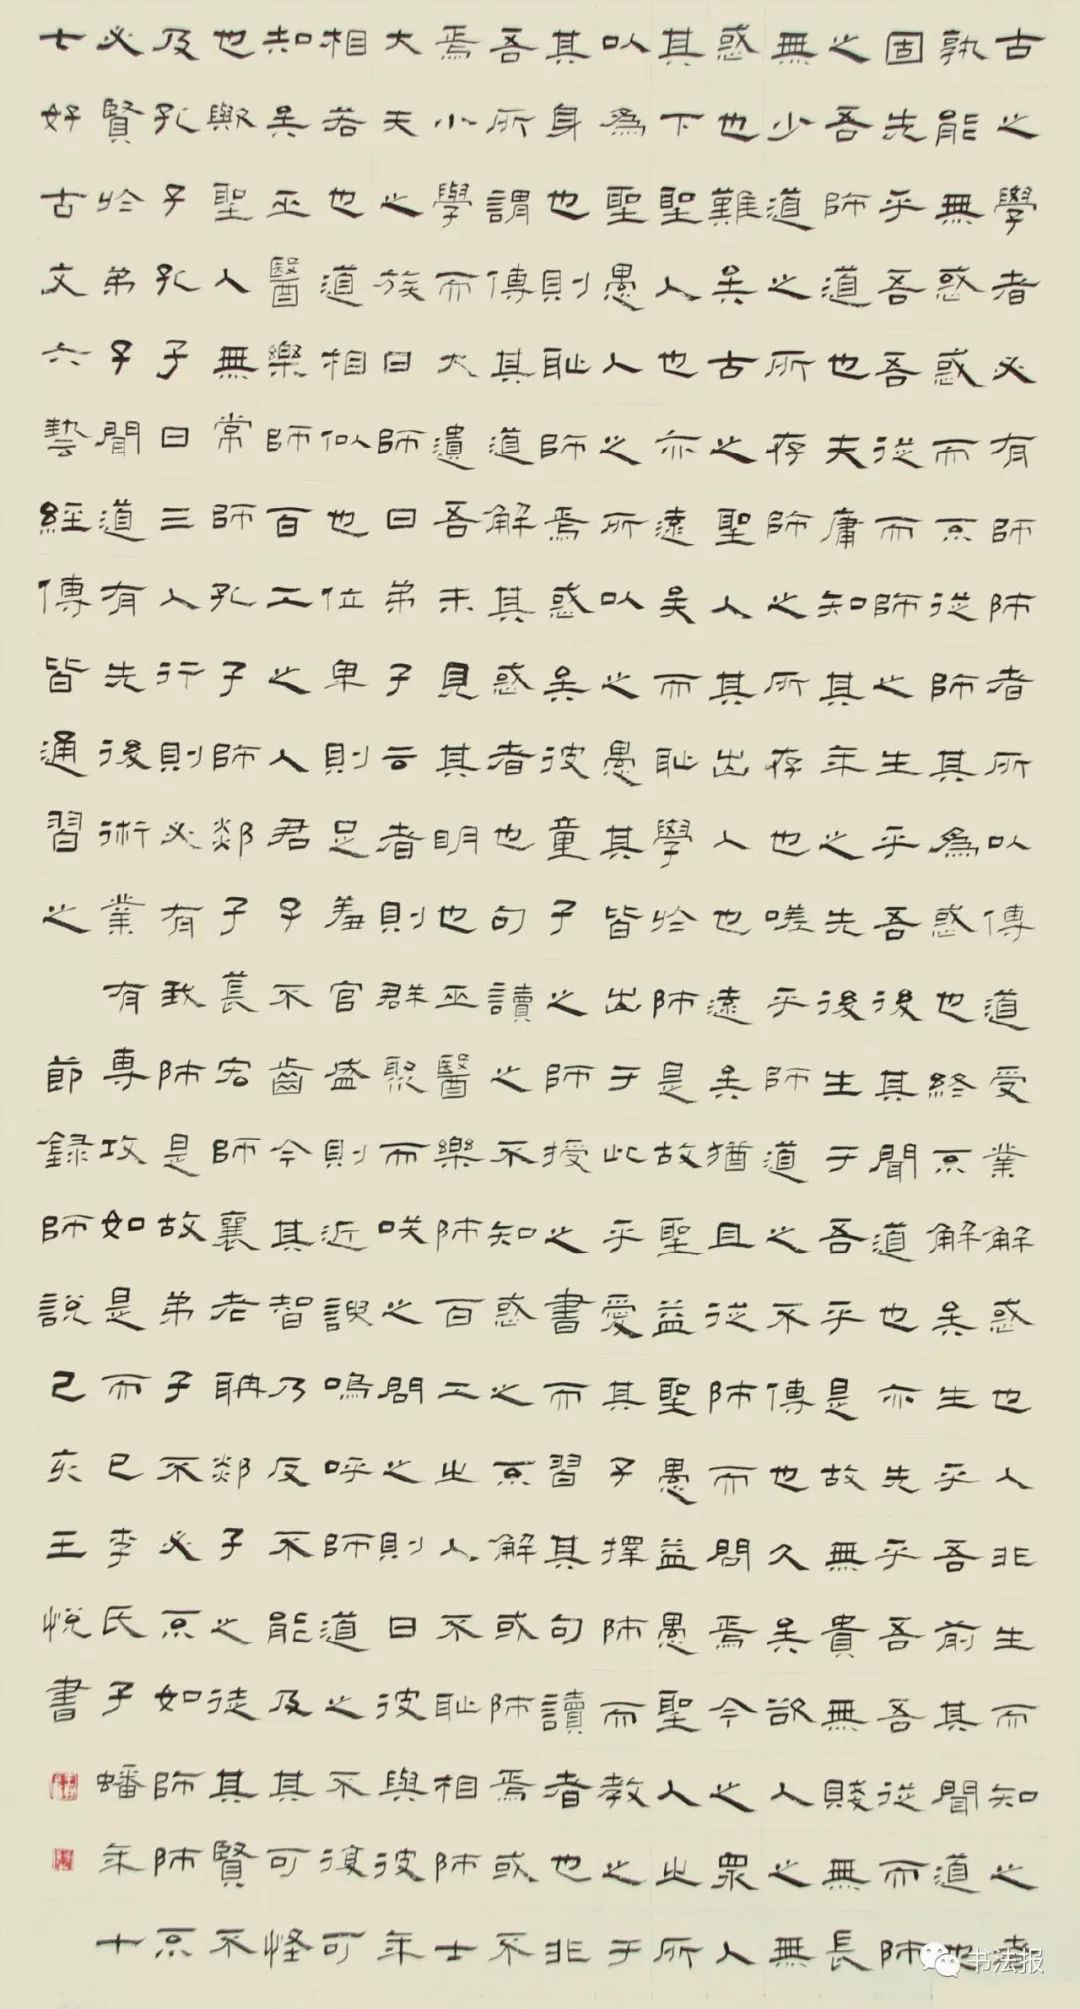 古之學者必有師師者所以傳道受業解惑也人非生而知之者
孰能無惑惑而不從師其為惑也終不解矣生乎吾前其聞道也
固先乎吾吾從而師之生乎吾後其聞道也亦先乎吾吾從而師
之吾師道也夫庸知其年之先後生于吾乎是故無貴無賤無長
無少道之所存師之所存也嗟乎師道之不傳也久矣欲人之無
惑也難矣古之聖人其出人也遠矣猶且從師而問焉今之衆人
其下聖人也亦遠矣而耻學於師是故聖益聖愚益愚聖人之所
以為聖愚人之所以之愚其皆出于此乎愛其子擇師而教之于
其身也則耻師焉惑矣彼童子之師授之書而習其句讀者也非
吾所謂傳其道解其惑者也句讀之不知惑之不解或師焉或不
焉小學而大遺吾未見其明也巫醫樂師百工之人不耻相師士
大夫之族曰師曰弟子云者則群聚而咲之問之則曰彼與彼年
相若也道相似也位卑則足羞官盛則近諛嗚呼師道之不復可
知矣巫醫樂師百工之人君子不齒今其智乃反不能及其可怪
也歟聖人無常師孔子師郯子萇宏師襄老聃郯子之徒其賢不
及孔子孔子曰三人行則必有我師是故弟子不必不如師師不
必賢於弟子聞道有先後術業有專攻如是而已李氏子蟠年十
七好古文六藝經傳皆通習之 節録師説己亥王悦書
书法报